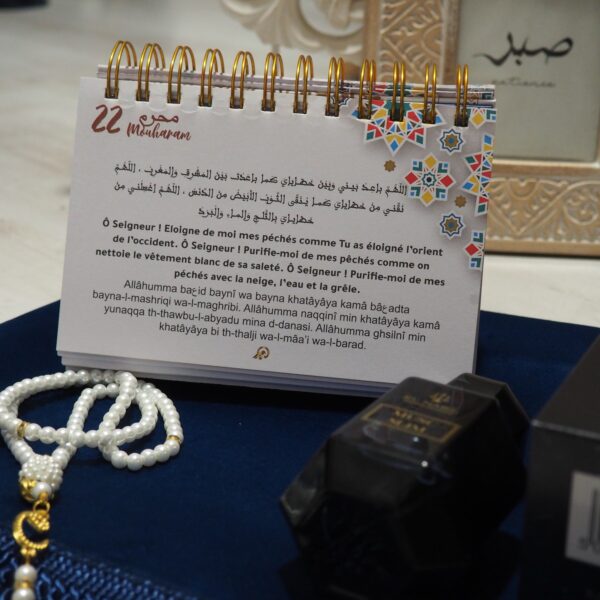 صبر
patience
22 محرم
Mouharam
اللَّهُمَّ بَاعِدْ بيني وبَيْنَ خَطَايَايَ كما بَاعَدْتَ بيْنَ المَشْرِقِ والمَغْرِبِ ، اللَّهُمَّ
نَقِّنِي مِن خَطَايَايَ كما يُنَقَّى الثَّوْبُ الأبْيَضُ مِنَ الدَّنَسِ ، اللَّهُمَّ اغْسِلْنِي مِن
خَطَايَايَ بالثَّلْجِ والمَاءِ والبَرَدِ
Ô Seigneur ! Eloigne de moi mes péchés comme Tu as éloigné l'orient
de l'occident. Ô Seigneur ! Purifie-moi de mes péchés comme on
nettoie le vêtement blanc de sa saleté. Ô Seigneur ! Purifie-moi de mes
péchés avec la neige, l'eau et la grêle.
Allâhumma baعid baynî wa bayna khatâyâya kamâ bâعadta
bayna-l-mashriqi wa-l-maghribi. Allâhumma naqqinî min khatâyâya kamâ
yunaqqa th-thawbu-l-abyadu mina d-danasi. Allâhumma ghsilnî min
khatâyâya bi th-thalji wa-l-mâa'i wa-l-barad.